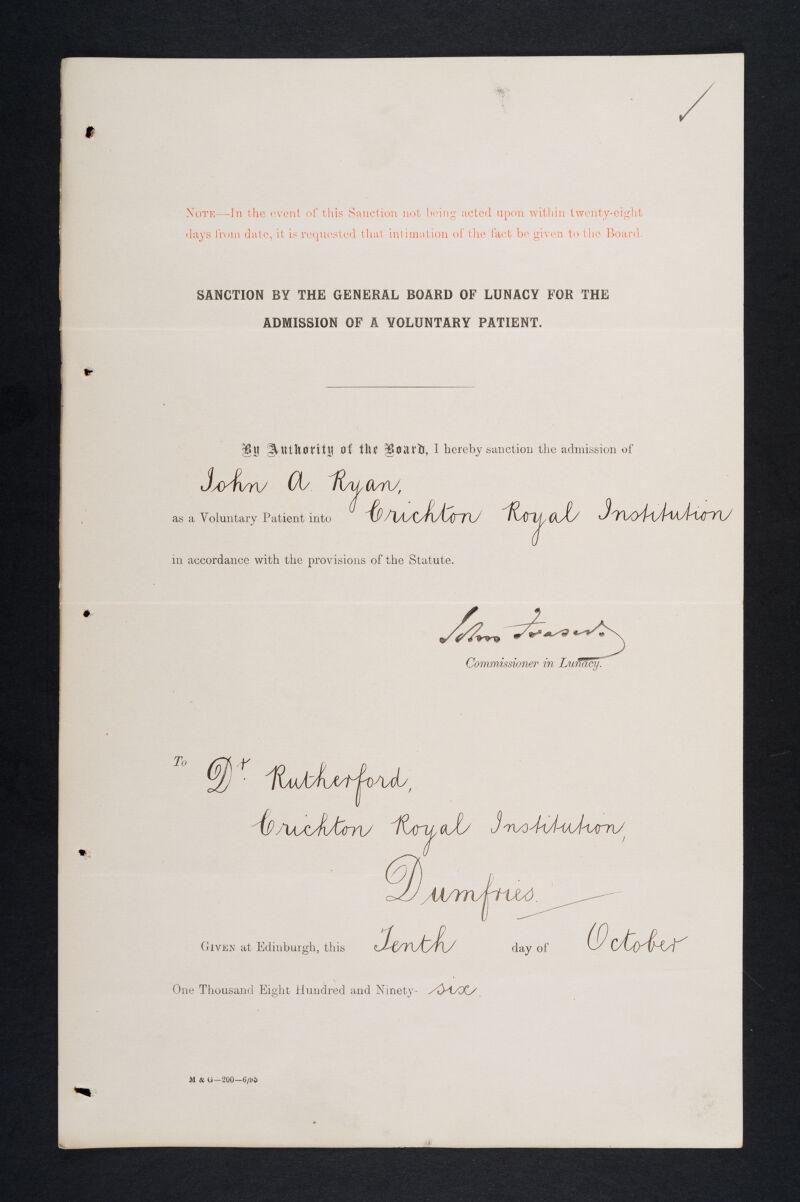 NOTE—In the event of this Sanction not being acted upon within twenty-eight
days from date, it is requested that intimation of the fact be given to the Board.
SANCTION BY THE GENERAL BOARD OF LUNACY FOR THE
ADMISSION OF A VOLUNTARY PATIENT.
By Authority of the Board, I hereby sanction the admission of
John A. Ryan,
as a Voluntary Patient into Crichton Royal Institution
in accordance with the provisions of the Statute.
John Fraser.
Commissioner in Lunacy.
To Dr. Rutherford,
Crichton Royal Institution,
Dumfries.
GIVEN at Edinburgh, this Tenth day of October
One Thousand Eight Hundred and Ninety- six.
M & G—200—6/95